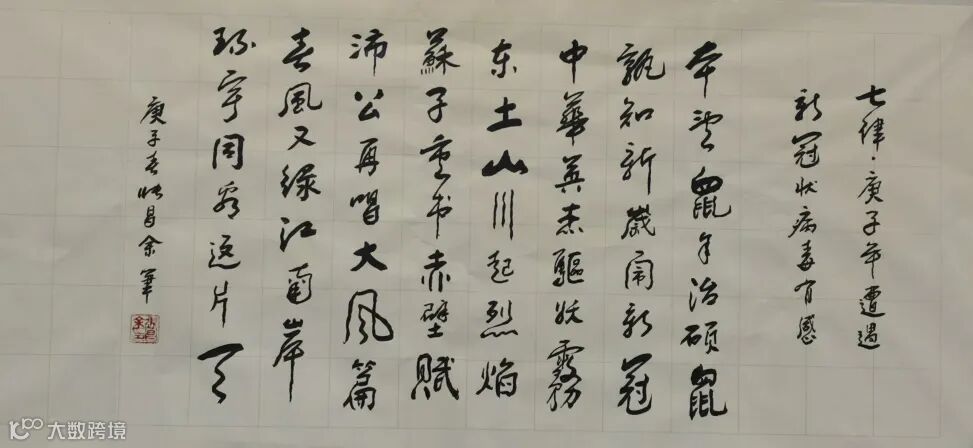 七律·庚子年遭遇
新冠状病毒有感
本望鼠年治硕鼠
孰知新岁闹新冠
中华英杰驱妖雾
东土山川起烈焰
苏子重书赤壁赋
沛公再唱大风篇
春风又绿江南岸
环宇同容这片天
庚子春 昌余笔
大数跨境